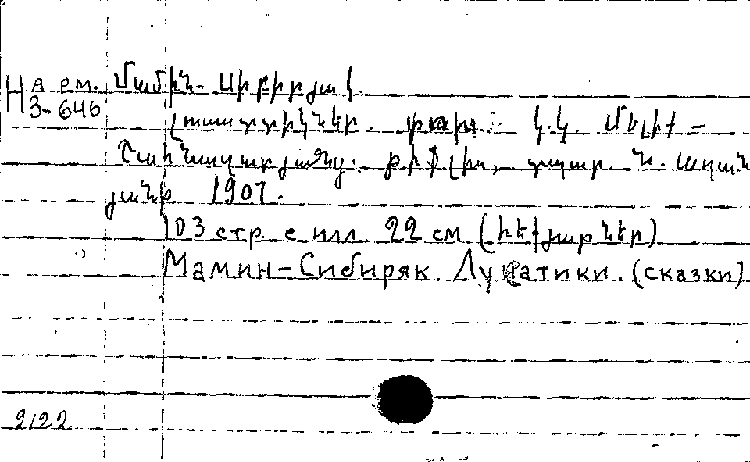 На арм. Մամին-Սիբիրյակ
3-646
Լուսատտիկներ. փոխ. Կ.Կ. Մելիք-
Շահնազարյանց. Թիֆլիս, տպար. Ն. Աղան
յանի 1907.
103 стр с илл 22 см (հեքյաթներ)
Мамин-Сибиряк. Лукатики. (сказки)
2122